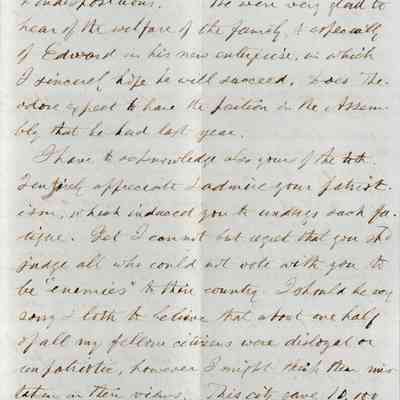 indispositions. We were very glad to
hear of the welfare of the family, & especially
of Edward in his new enterprise, in which
I sincerely hope he will succeed. Does The-
odore expect to have the position in the Assem-
bly that he had last year.
I have to acknowledge also yours of the
I entirely appreciate & admire your patriot-
ism, which induced you to undergo such fa-
tigue. Yet I can not but regret that you shd
judge all who could not vote with you to
be "enemies" to their country. I should be very
sorry & loth to believe that about one half
of all my fellow citizens were disloyal or
unpatriotic, however I might think them mis-
taken in their views. This city gave